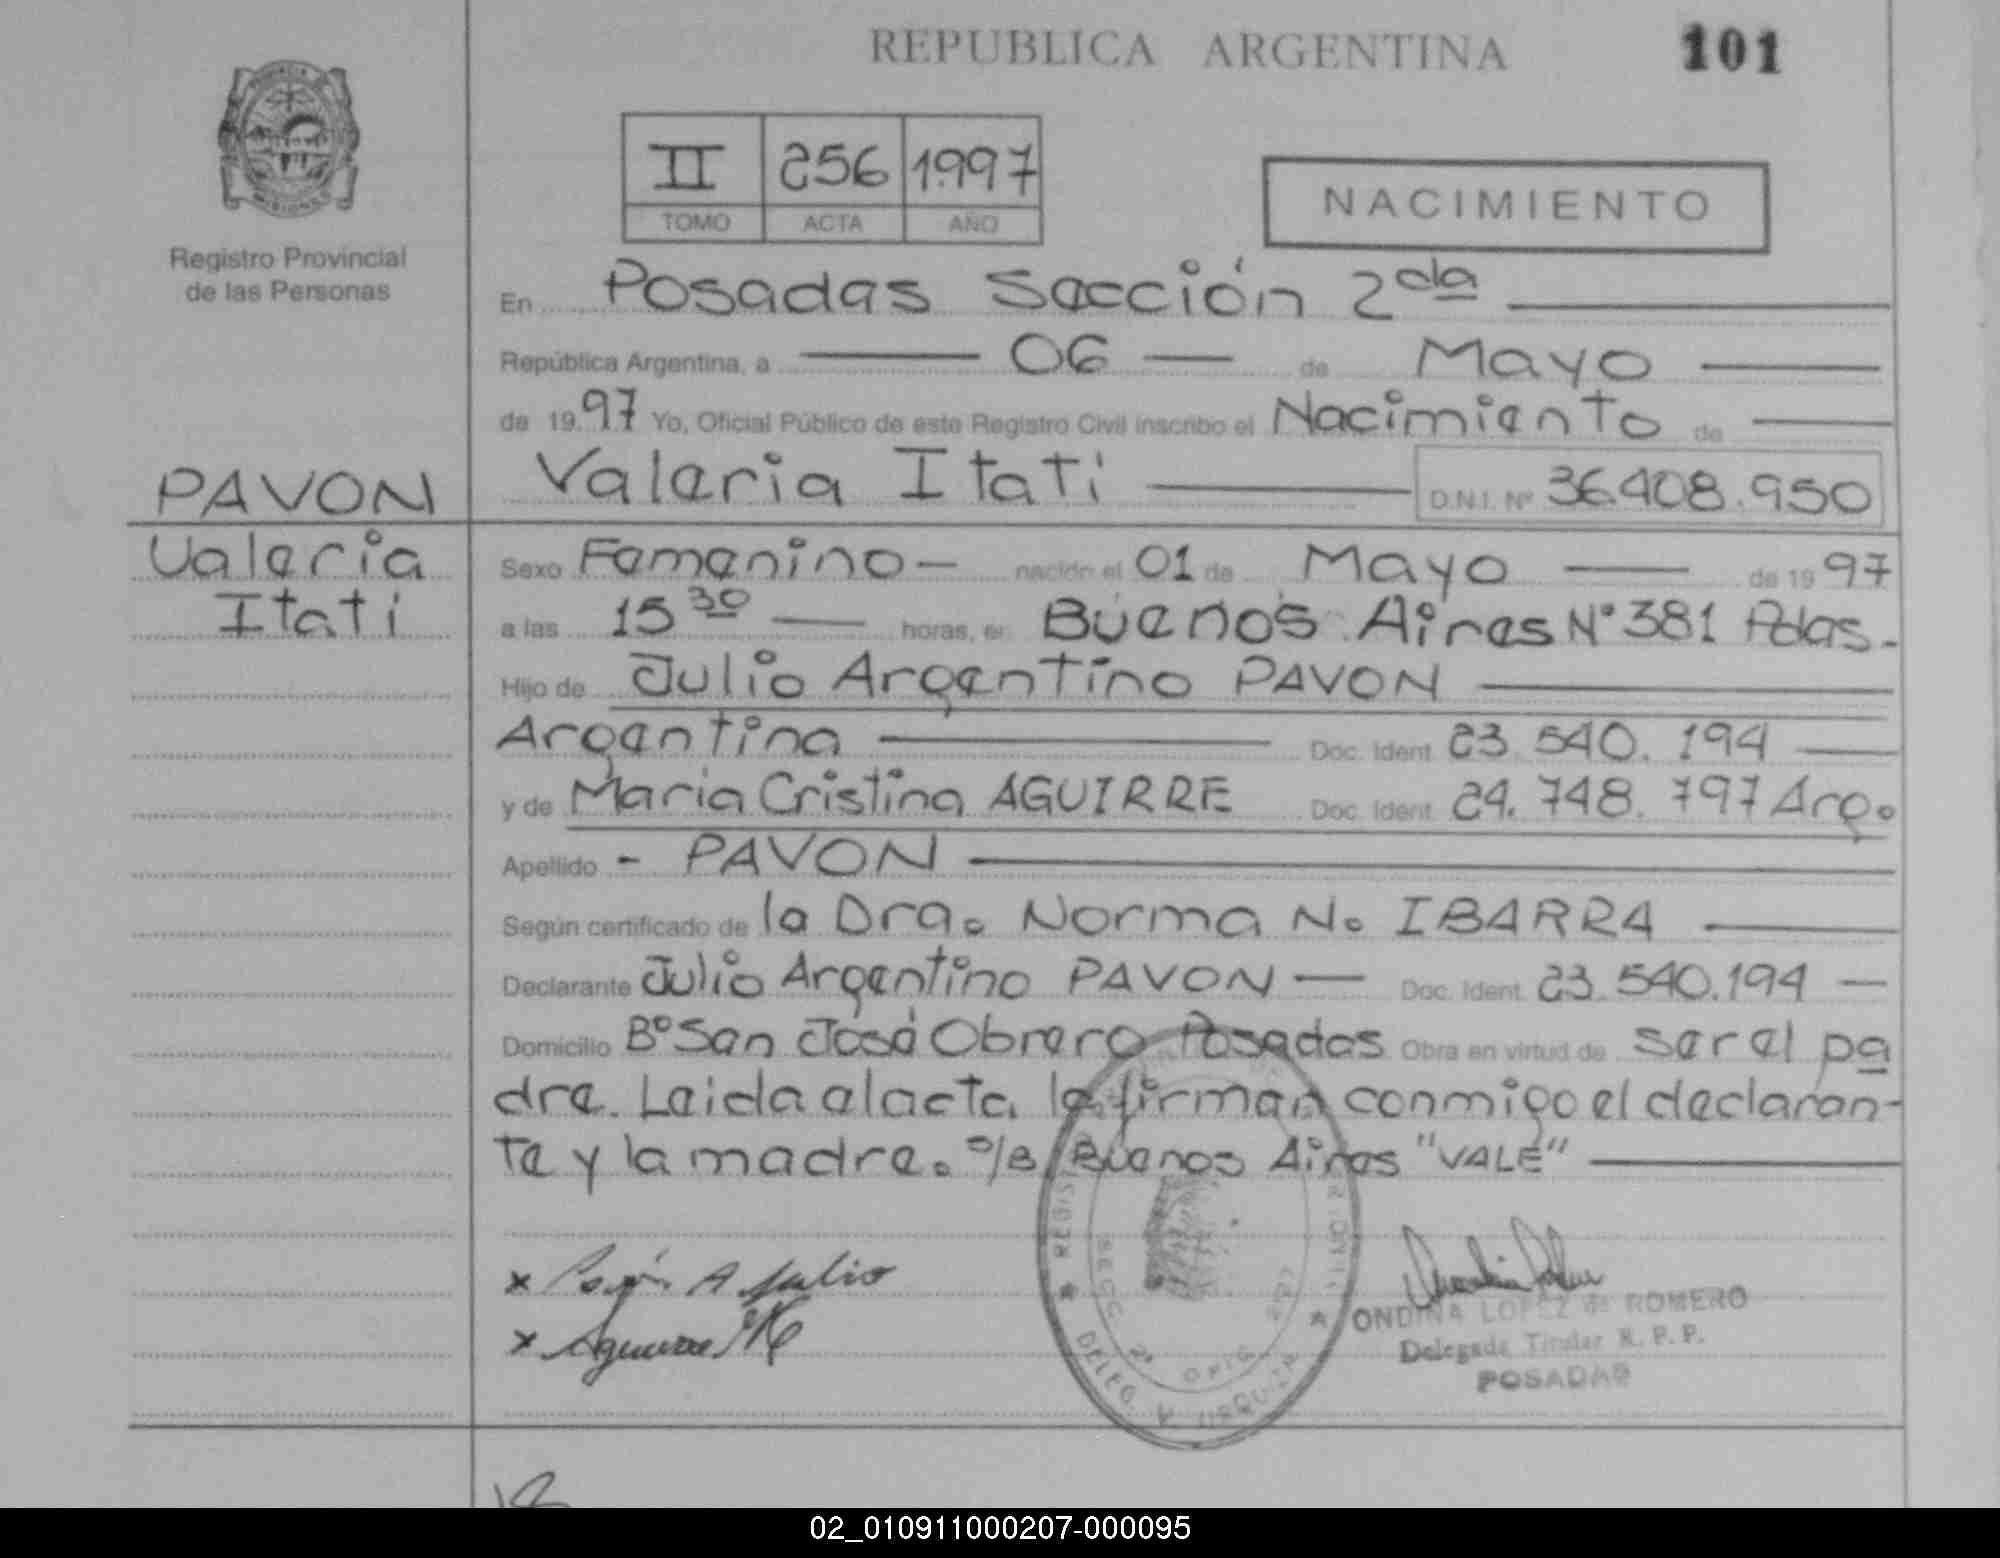 REPUBLICA ARGENTINA
101
II 256 1.997
TOMO ACTA AÑO
NACIMIENTO
Registro Provincial
de las Personas
En Posadas Sección 2da
República Argentina, a 06 de Mayo
de 1997 Yo, Oficial Público de este Registro Civil inscribo el Nacimiento de
PAVON
Valeria Itati D.N.I. Nº 36.408.950
Valeria
Itati
Sexo Femenino - nación el 01 de Mayo de 1997
a las 15 30 horas, en Buenos Aires Nº 381 Pdas.
Hijo de Julio Argentino PAVON
Argentina Doc. Ident. 23.540.194
y de Maria Cristina AGUIRRE Doc. Ident. 24.748.797 Arg.
Apellido - PAVON
Según certificado de la Dra. Norma N. IBARRA
Declarante Julio Argentino PAVON Doc. Ident. 23.540.194
Domicilio Bº San José Obrero Posadas Obra en virtud de ser el pa
dre. Leida el acta la firman conmigo el declaran-
te y la madre. º/s/Buenos Aires "VALE"
x Pavón A Julio
x Aguirre MC
REGIS
SECC 2ª OFIC
DELEG. URQUIZA
ONDINA LOPEZ de ROMERO
Delegada Titular R. P. P.
POSADAS
02_010911000207-000095